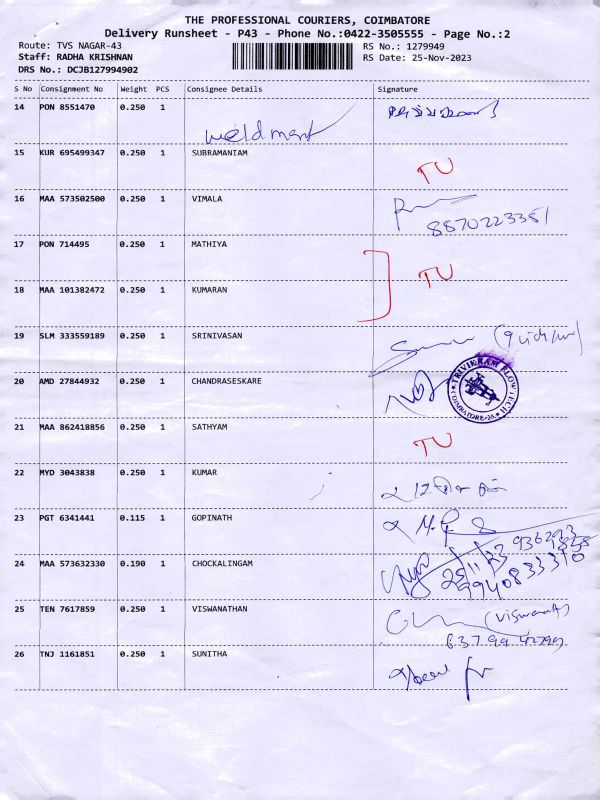 THE PROFESSIONAL COURIERS, COIMBATORE
Delivery Runsheet - P43 - Phone No.:0422-3505555 - Page No.:2
Route: TVS NAGAR-43 RS No.: 1279949
Staff: RADHA KRISHNAN RS Date: 25-Nov-2023
DRS No.: DCJB127994902
S No Consignment No Weight PCS Consignee Details Signature
14 PON 8551470 0.250 1
weldment
15 KUR 695499347 0.250 1 SUBRAMANIAM
TU
16 MAA 573502500 0.250 1 VIMALA
8870223351
17 PON 714495 0.250 1 MATHIYA
TU
18 MAA 101382472 0.250 1 KUMARAN
19 SLM 333559189 0.250 1 SRINIVASAN
20 AMD 27844932 0.250 1 CHANDRASESKARE
TRIVIKRAM FLOW TECH
COIMBATORE-25
21 MAA 862418856 0.250 1 SATHYAM
TU
22 MYD 3043838 0.250 1 KUMAR
23 PGT 6341441 0.115 1 GOPINATH
24 MAA 573632330 0.190 1 CHOCKALINGAM
25/11/23
9940833310
25 TEN 7617859 0.250 1 VISWANATHAN
26 TNJ 1161851 0.250 1 SUNITHA